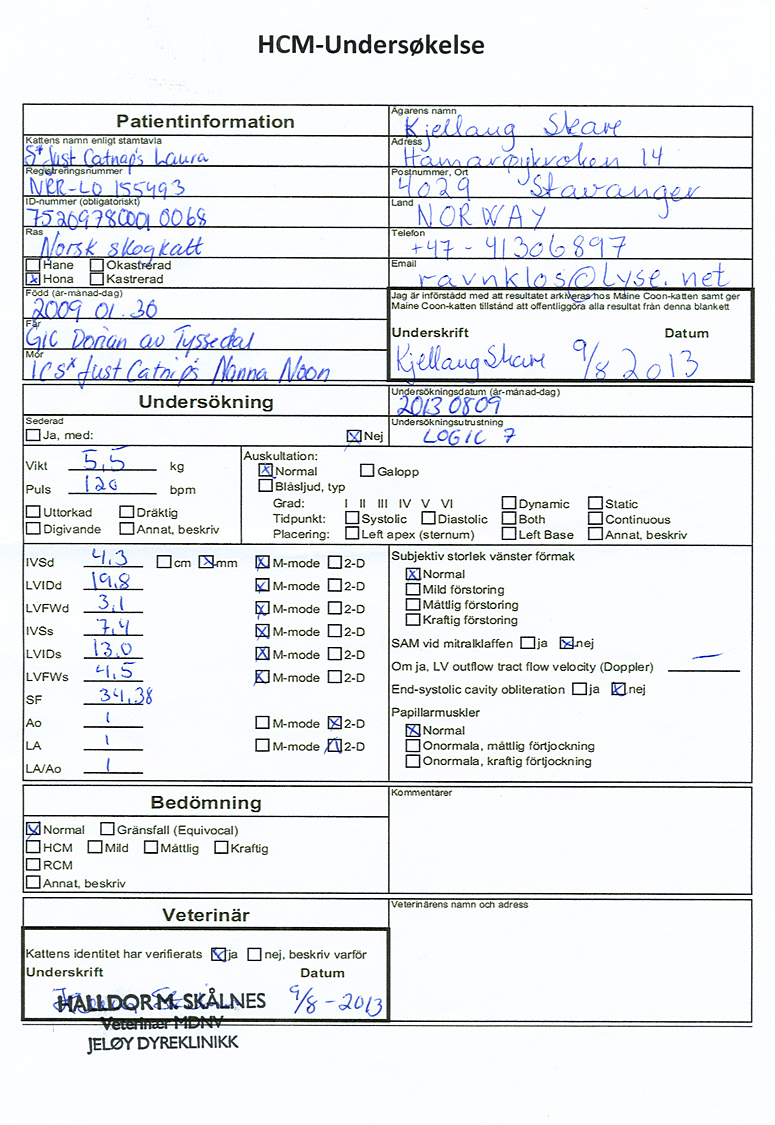 HCM-Undersøkelse
Patientinformation
Kattens namn enligt stamtavla
S* Just Catnap's Laura
Registreringsnummer
NRR-LO 155493
ID-nummer (obligatoriskt)
752697800010068
Ras
Norsk skogkatt
Hane Okastrerad
Hona Kastrerad
Född (år-månad-dag)
2009 01.30
Far
GIC Dorian av Tyssedal
Mor
IC S* Just Catnip's Nanna Noon
Ägarens namn
Kjellaug Skare
Adress
14
Postnummer, Ort
4029 Stavanger
Land
NORWAY
Telefon
+47 - 41306897
Email
ravnklos@lyse.net
Jag är införstådd med att resultatet arkiveras hos Maine Coon-katten samt ger
Maine Coon-katten tillstånd att offentliggöra alla resultat från denna blankett
Underskrift Datum
Kjellaug Skare 9/8 2013
Undersökning
Undersökningsdatum (år-månad-dag)
2013 08 09
Sederad
Ja, med: Nej
Undersökningsutrustning
LOGIC 7
Vikt 5,5 kg
Puls 120 bpm
Uttorkad Dräktig
Digivande Annat, beskriv
Auskultation:
Normal Galopp
Blåsljud, typ
Grad: I II III IV V VI Dynamic Static
Tidpunkt: Systolic Diastolic Both Continuous
Placering: Left apex (sternum) Left Base Annat, beskriv
IVSd 4,3 cm mm M-mode 2-D
LVIDd 19,8 M-mode 2-D
LVFWd 3,1 M-mode 2-D
IVSs 7,4 M-mode 2-D
LVIDs 13,0 M-mode 2-D
LVFWs 4,5 M-mode 2-D
SF 34,38
Ao 1 M-mode 2-D
LA 1 M-mode 2-D
LA/Ao 1
Subjektiv storlek vänster förmak
Normal
Mild förstoring
Måttlig förstoring
Kraftig förstoring
SAM vid mitralklaffen ja nej
Om ja, LV outflow tract flow velocity (Doppler)
End-systolic cavity obliteration ja nej
Papillarmuskler
Normal
Onormala, måttlig förtjockning
Onormala, kraftig förtjockning
Bedömning
Normal Gränsfall (Equivocal)
HCM Mild Måttlig Kraftig
RCM
Annat, beskriv
Kommentarer
Veterinär
Kattens identitet har verifierats ja nej, beskriv varför
Underskrift Datum
HALLDOR M. SKÅLNES 9/8 - 2013
Veterinær MDNV
JELØY DYREKLINIKK
Veterinärens namn och adress